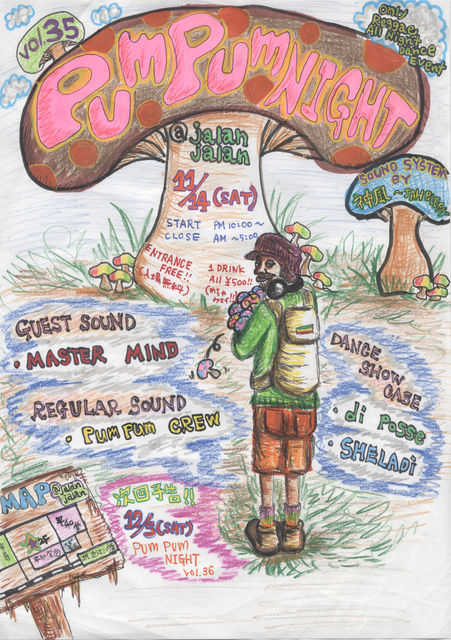 vol.35
Only
Reggae
All Night
Dance
Event
PUMPUMNIGHT
@jalan
jalan
11/14(SAT)
START PM10:00~
CLOSE AM~5:00
ENTRANCE
FREE!!
(入場無料)
1 DRINK
All ¥500!!
SOUND SYSTEM
BY
神風
GUEST SOUND
・MASTER MIND
REGULAR SOUND
・PUMPUM CREW
DANCE
SHOW
CASE
・di Posse
・SHELADi
MAP@jalan
jalan
次回予告!!
12/5(SAT)
PUM PUM
NIGHT
vol.36